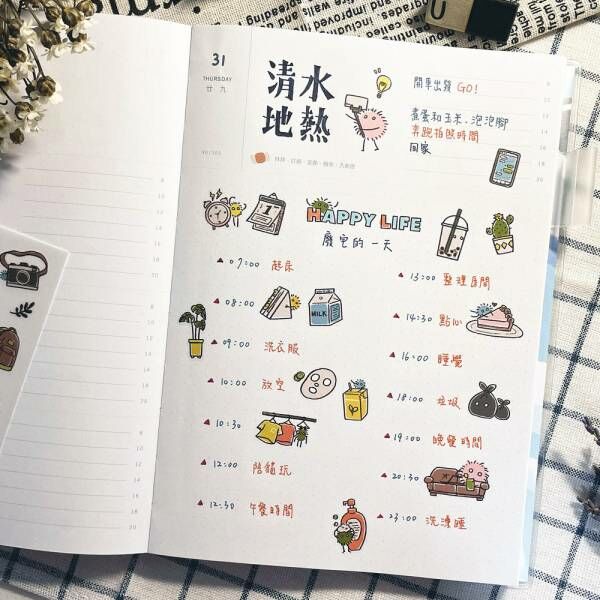 31
THURSDAY
廿九
清水
地熱
開車出發 GO!
煮蛋和玉米、泡泡腳
奔跑拍照時間
回家
HAPPY LIFE
廢宅的一天
07:00 起床
08:00
MILK
09:00 洗衣服
10:00 放空
10:30
12:00 陪貓玩
12:30 午餐時間
13:00 整理房間
14:30 點心
16:00 睡覺
18:00 垃圾
19:00 晚餐時間
20:30
23:00 洗澡睡